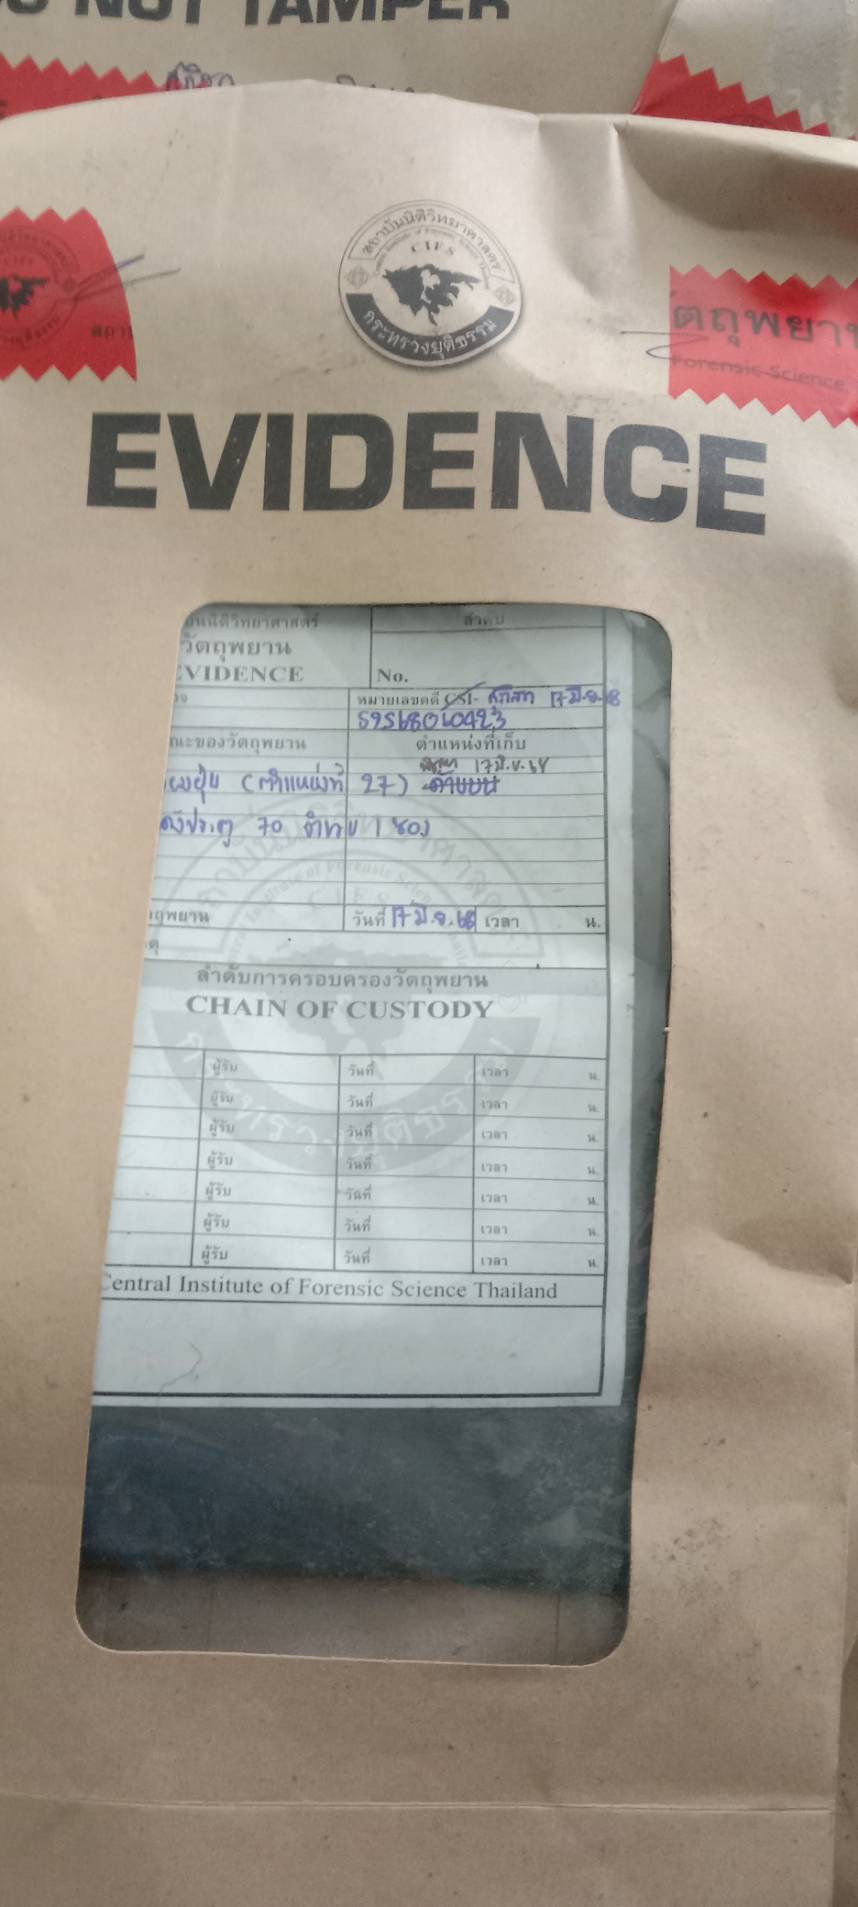 NOT TAMPER
สถาบันนิติวิทยาศาสตร์
Central Institute of Forensic Science Thailand
CIFS
กระทรวงยุติธรรม
ตถุพยาน
Forensic Science
EVIDENCE
นนิติวิทยาศาสตร์ ลำดับ
วัตถุพยาน
VIDENCE No.
หมายเลขคดี CSI- 17 มิ.ย. 68
S9568060423
ณะของวัตถุพยาน ตำแหน่งที่เก็บ
17 มิ.ย. 68
(ตำแหน่งที่ 27) ด้านบน
70 1 ซอง
ถุพยาน วันที่ 17 มิ.ย. 68 เวลา น.
ลำดับการครอบครองวัตถุพยาน
CHAIN OF CUSTODY
ผู้รับ วันที่ เวลา น.
ผู้รับ วันที่ เวลา น.
ผู้รับ วันที่ เวลา น.
ผู้รับ วันที่ เวลา น.
ผู้รับ วันที่ เวลา น.
ผู้รับ วันที่ เวลา น.
ผู้รับ วันที่ เวลา น.
Central Institute of Forensic Science Thailand